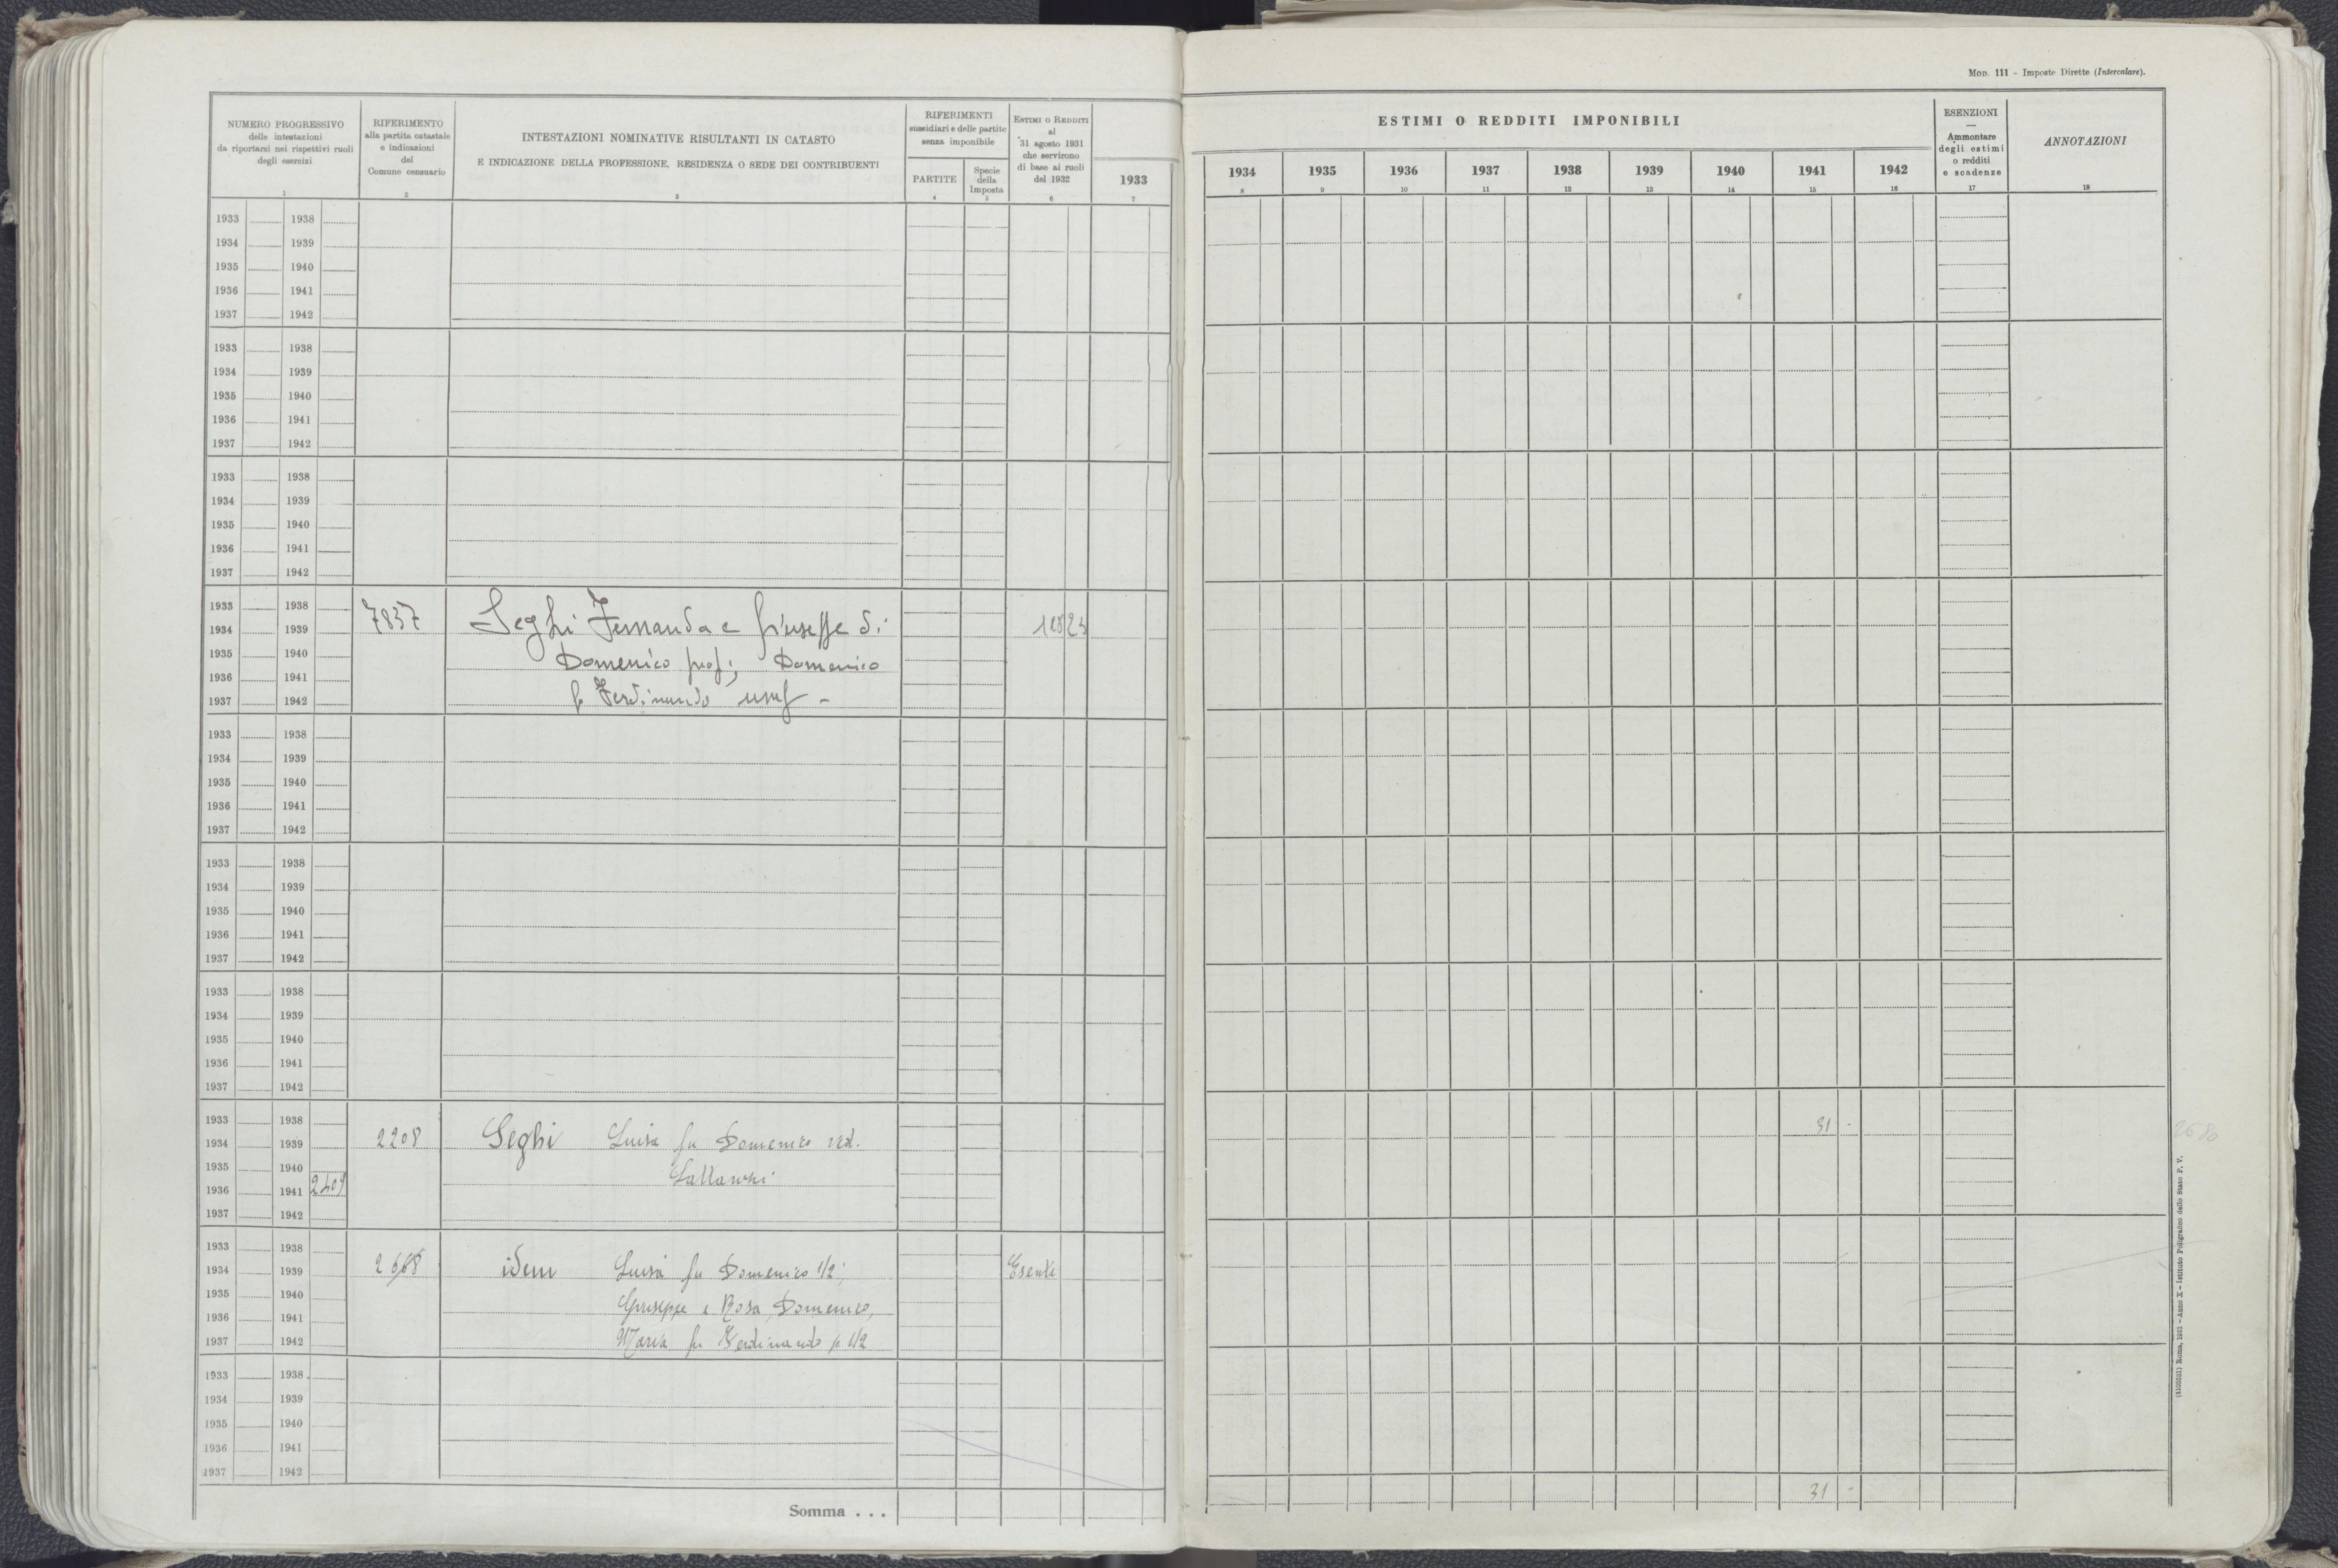 Mod. 111 - Imposte Dirette (Intercalare).
NUMERO PROGRESSIVO
delle intestazioni
da riportarsi nei rispettivi ruoli
degli esercizi
1
RIFERIMENTO
alla partita catastale
e indicazioni
del
Comune censuario
2
INTESTAZIONI NOMINATIVE RISULTANTI IN CATASTO
E INDICAZIONE DELLA PROFESSIONE, RESIDENZA O SEDE DEI CONTRIBUENTI
3
RIFERIMENTI
sussidiari e delle partite
senza imponibile
PARTITE
4
Specie
della
Imposta
5
ESTIMI O REDDITI
al
31 agosto 1931
che servirono
di base ai ruoli
del 1932
6
1933
7
ESTIMI O REDDITI IMPONIBILI
1934 1935 1936 1937 1938 1939 1940 1941 1942
8 9 10 11 12 13 14 15 16
ESENZIONI
—
Ammontare
degli estimi
o redditi
e scadenze
17
ANNOTAZIONI
18
1933 1938
1934 1939
1935 1940
1936 1941
1937 1942
1933 1938
1934 1939
1935 1940
1936 1941
1937 1942
1933 1938
1934 1939
1935 1940
1936 1941
1937 1942
1933 1938
1934 1939 7837 Seghi Fernanda e Giuseppe di
1935 1940 Domenico prop; Domenico
1936 1941
1937 1942 Ferdinando usuf -
1933 1938
1934 1939
1935 1940
1936 1941
1937 1942
1933 1938
1934 1939
1935 1940
1936 1941
1937 1942
1933 1938
1934 1939
1935 1940
1936 1941
1937 1942
1933 1938 31 -
1934 1939 2208 Seghi Luisa fu Domenico ved.
1935 1940
1936 1941
1937 1942
1933 1938
1934 1939 idem Luisa fu Domenico 1/2; Esente
1935 1940
1936 1941 Giuseppe e Rosa, Domenico,
1937 1942 Maria fu Ferdinando p 1/2
1933 1938
1934 1939
1935 1940
1936 1941
1937 1942
Somma . . . 31 -
Roma, 1931 - Anno X - Istituto Poligrafico dello Stato P. V.